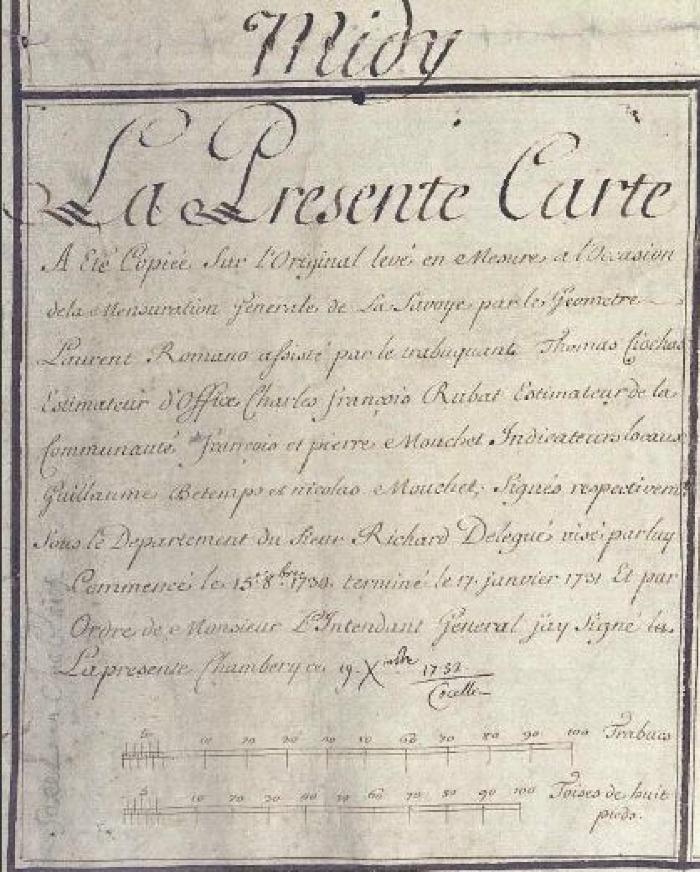 Midy
La Presente Carte
A Eté Copiée Sur l'Original levé en Mesure a l'Occasion
dela Mensuration Generale de La Savoye par le Geometre
Laurent Romano assisté par le trabuquant Thomas
Estimateur d'Office Charles françois Rubat Estimateur de la
Communauté françois et pierre Mouchet Indicateurs locaux
Guillaume Betemps et nicolas Mouchet; Signés respectivemt
Sous le Departement du Sieur Richard Delegué visé par luy
Commencé le 15e 8bre 1730. terminé le 17 janvier 1731 Et par
Ordre de Monsieur L'Intendant General j'ay Signé
La presente Chambery ce 19. Xmbre 1732
Cocelli
5 10 20 30 40 50 60 70 80 90 100 Trabucs
5 10 20 30 40 50 60 70 80 90 100 Toises de huit
pieds.